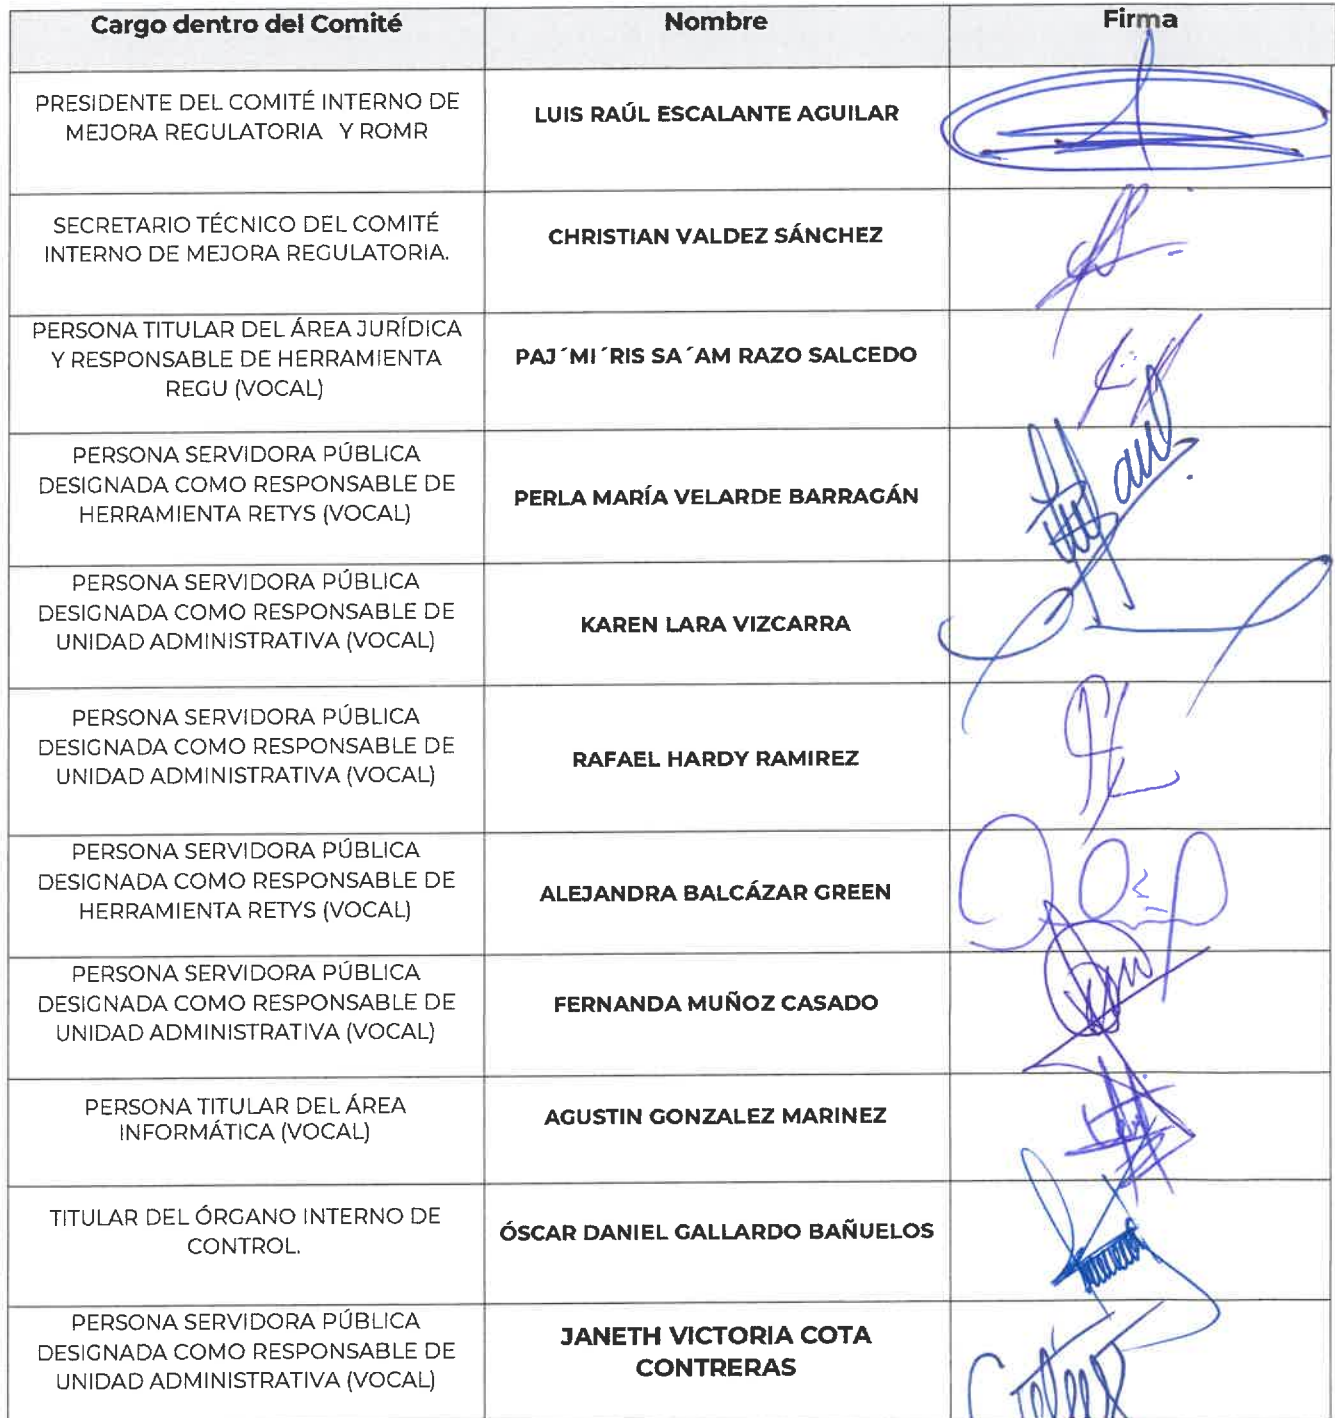 Cargo dentro del Comité
Nombre
Firma
PRESIDENTE DEL COMITÉ INTERNO DE
MEJORA REGULATORIA Y ROMR
LUIS RAÚL ESCALANTE AGUILAR
SECRETARIO TÉCNICO DEL COMITÉ
INTERNO DE MEJORA REGULATORIA.
CHRISTIAN VALDEZ SÁNCHEZ
PERSONA TITULAR DEL ÁREA JURÍDICA
Y RESPONSABLE DE HERRAMIENTA
REGU (VOCAL)
PAJ´MI´RIS SA´AM RAZO SALCEDO
PERSONA SERVIDORA PÚBLICA
DESIGNADA COMO RESPONSABLE DE
HERRAMIENTA RETYS (VOCAL)
PERLA MARÍA VELARDE BARRAGÁN
PERSONA SERVIDORA PÚBLICA
DESIGNADA COMO RESPONSABLE DE
UNIDAD ADMINISTRATIVA (VOCAL)
KAREN LARA VIZCARRA
PERSONA SERVIDORA PÚBLICA
DESIGNADA COMO RESPONSABLE DE
UNIDAD ADMINISTRATIVA (VOCAL)
RAFAEL HARDY RAMIREZ
PERSONA SERVIDORA PÚBLICA
DESIGNADA COMO RESPONSABLE DE
HERRAMIENTA RETYS (VOCAL)
ALEJANDRA BALCÁZAR GREEN
PERSONA SERVIDORA PÚBLICA
DESIGNADA COMO RESPONSABLE DE
UNIDAD ADMINISTRATIVA (VOCAL)
FERNANDA MUÑOZ CASADO
PERSONA TITULAR DEL ÁREA
INFORMÁTICA (VOCAL)
AGUSTIN GONZALEZ MARINEZ
TITULAR DEL ÓRGANO INTERNO DE
CONTROL.
ÓSCAR DANIEL GALLARDO BAÑUELOS
PERSONA SERVIDORA PÚBLICA
DESIGNADA COMO RESPONSABLE DE
UNIDAD ADMINISTRATIVA (VOCAL)
JANETH VICTORIA COTA
CONTRERAS